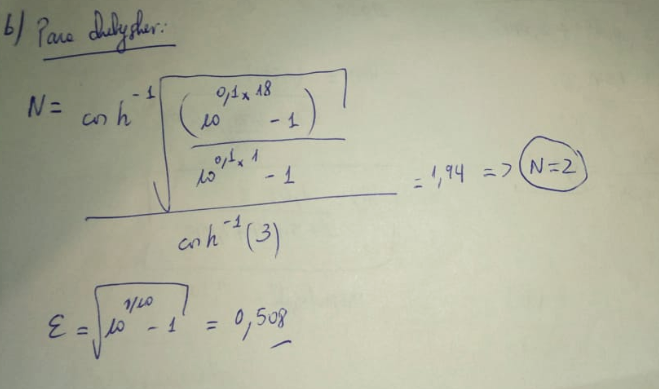 b) Para chebysher:
N = cosh⁻¹ √((10^(0,1 x 18) - 1) / (10^(0,1 x 1) - 1)) / cosh⁻¹(3) = 1,94 => N=2
ε = √(10^(1/10) - 1) = 0,508